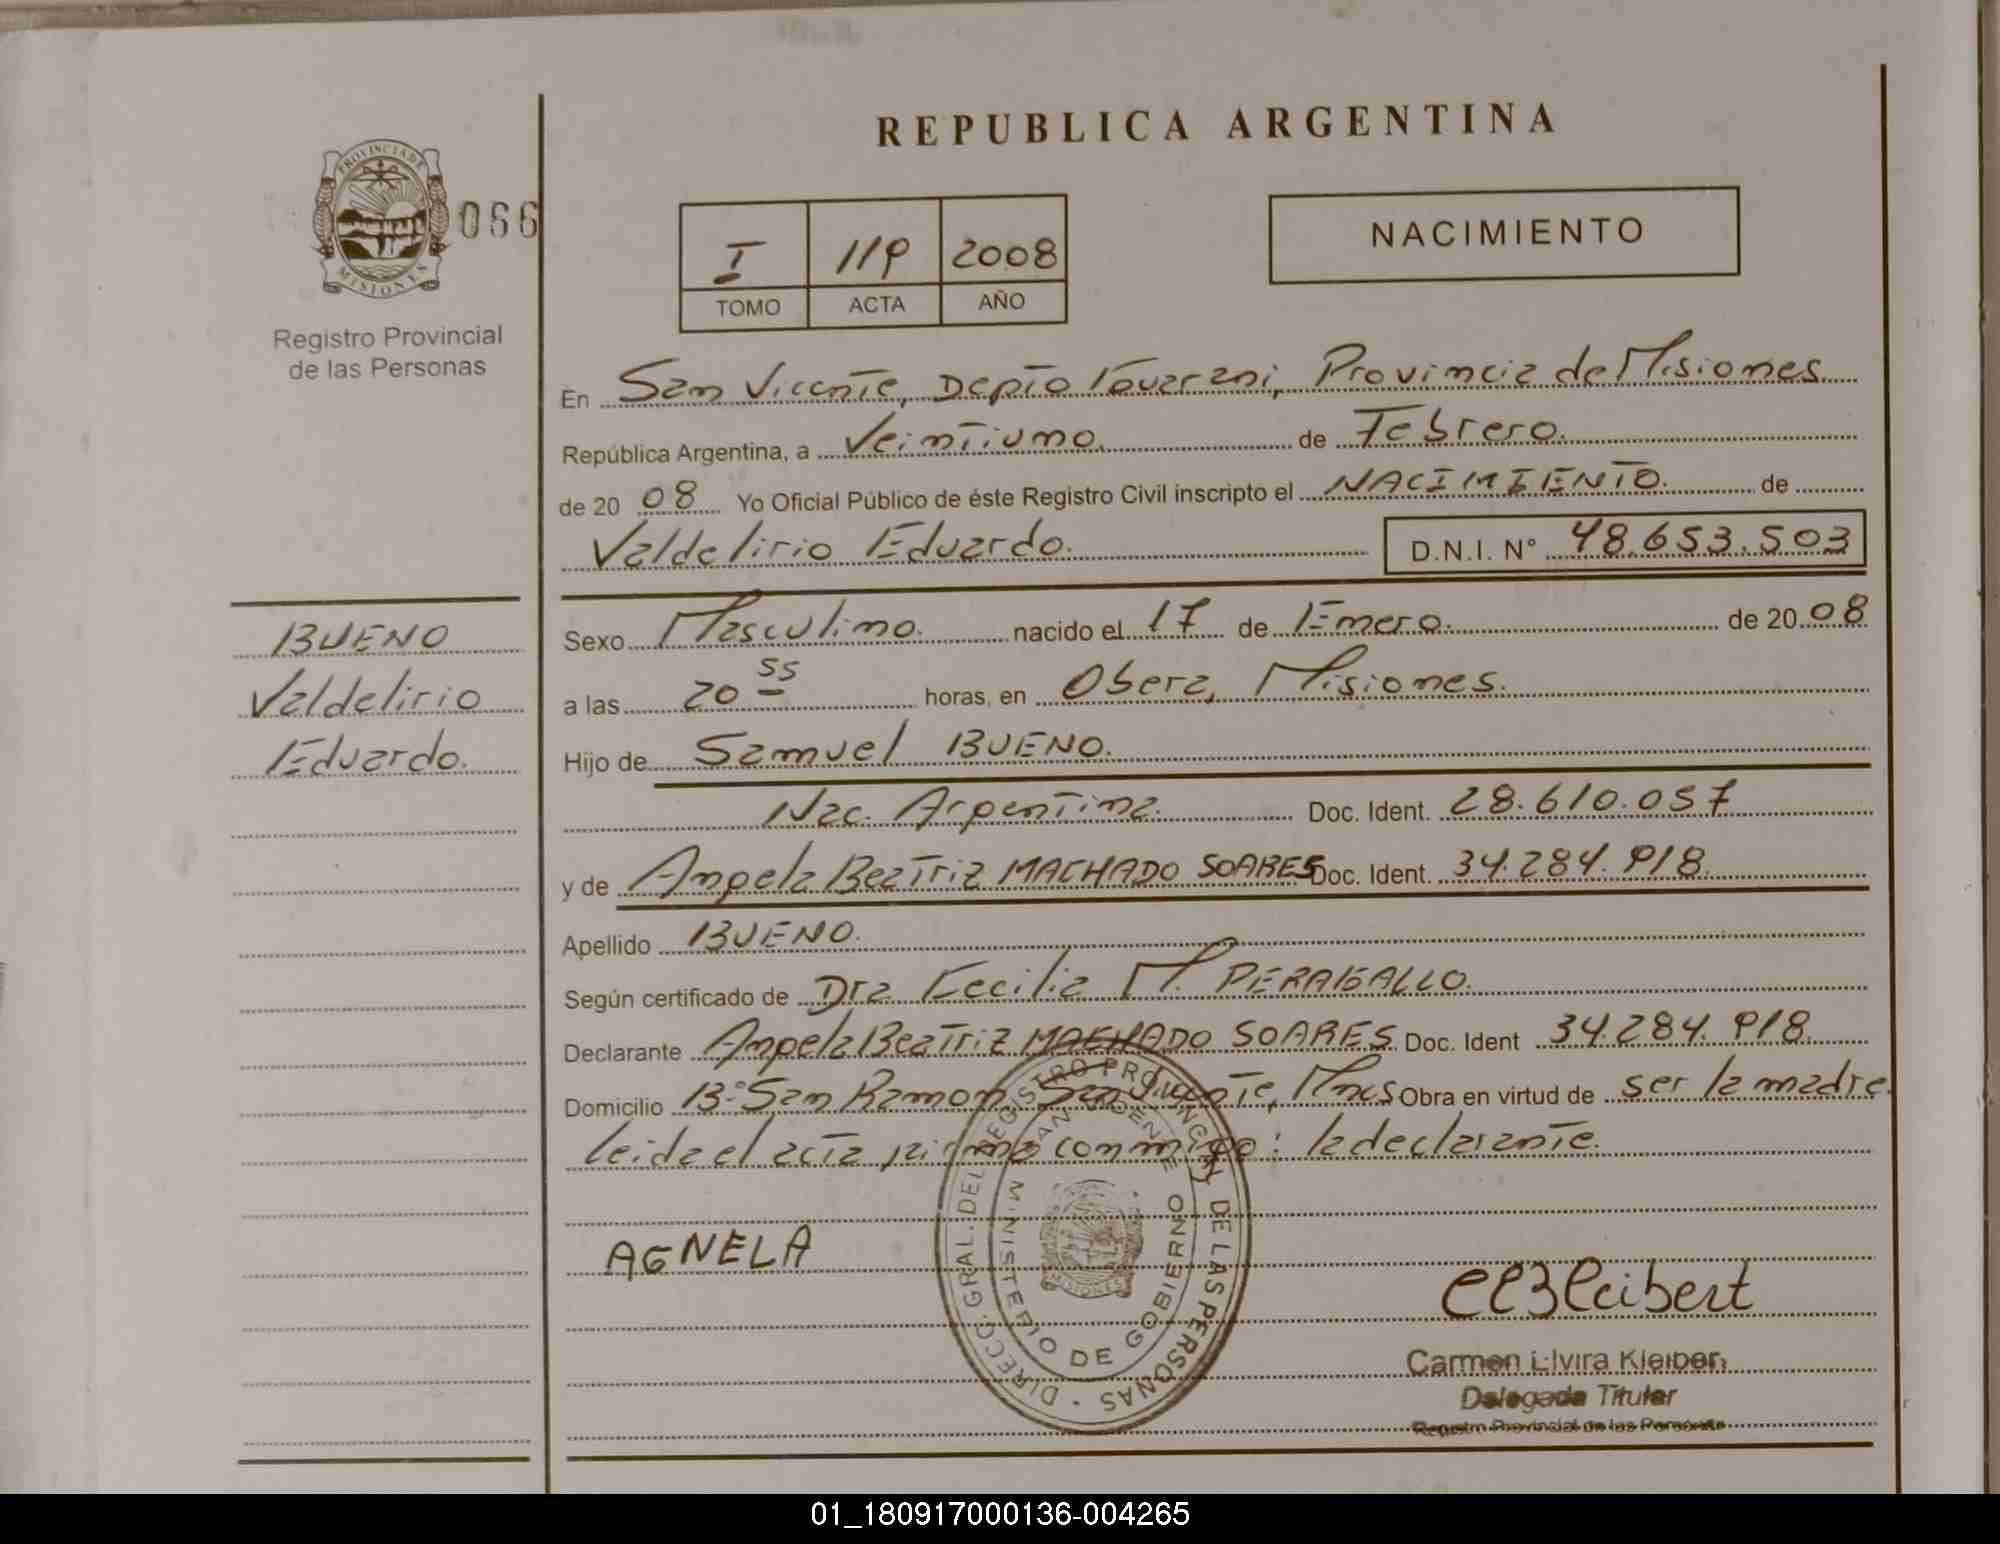 REPUBLICA ARGENTINA
PROVINCIA DE
MISIONES
066
Registro Provincial
de las Personas
I 119 2008
TOMO ACTA AÑO
NACIMIENTO
En San Vicente, Depto Guarani, Provincia de Misiones
República Argentina, a Veintiuno. de Febrero.
de 20 08 Yo Oficial Público de éste Registro Civil inscripto el NACIMIENTO. de
Valdelirio Eduardo. D.N.I. N° 48.653.503
BUENO
Valdelirio
Eduardo.
Sexo Masculino. nacido el 17 de Enero. de 20 08
a las 20 55 horas, en Obera, Misiones.
Hijo de Samuel BUENO.
Nac. Argentina. Doc. Ident. 28.610.057
y de Angela Beatriz MACHADO SOARES Doc. Ident. 34.284.918.
Apellido BUENO.
Según certificado de Dra Cecilia M. PERAGALLO.
Declarante Angela Beatriz MACHADO SOARES. Doc. Ident 34.284.918.
Domicilio B° San Ramon San Vicente, Mnes Obra en virtud de ser la madre.
leida el acta firma conmigo: la declarante.
AGNELA
DIRECC. GRAL. DEL REGISTRO PROVINCIAL DE LAS PERSONAS
SAN VICENTE
MINISTERIO DE GOBIERNO
MISIONES
Carmen Elvira Kleiber
Delegada Titular
Registro Provincial de las Personas
01_180917000136-004265